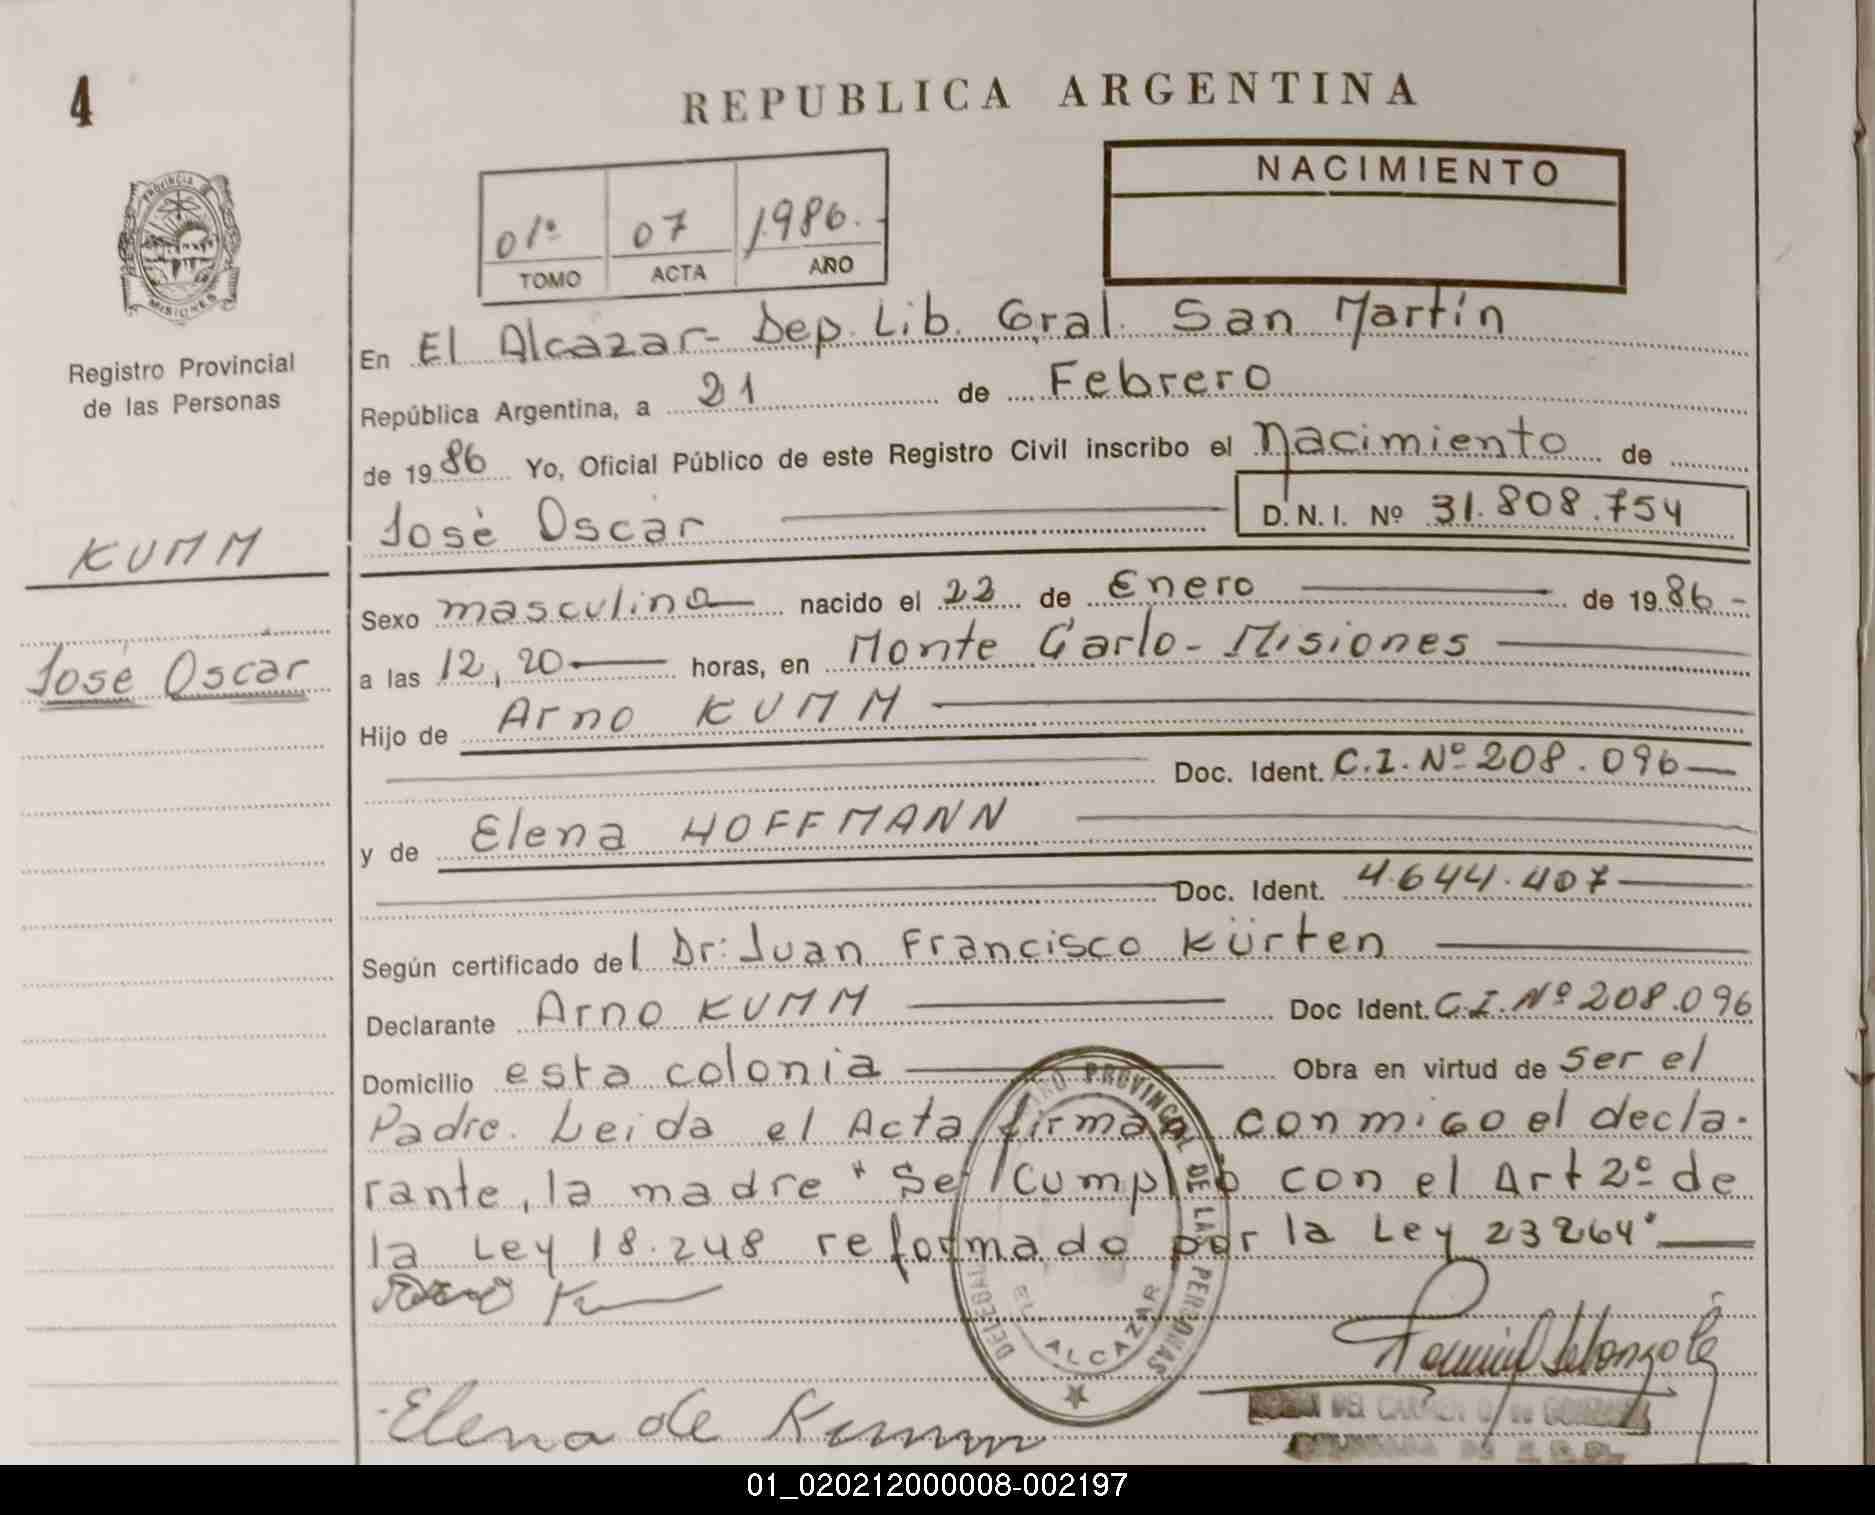 4
REPUBLICA ARGENTINA
PROVINCIA
MISIONES
Registro Provincial
de las Personas
01º 07 1986.-
TOMO ACTA AÑO
NACIMIENTO
En El Alcazar- Dep. Lib. Gral. San Martín
República Argentina, a 21 de Febrero
de 1986 Yo, Oficial Público de este Registro Civil inscribo el Nacimiento de
José Oscar D.N.I. Nº 31.808.754
KUMM
José Oscar
Sexo masculino nacido el 22 de Enero de 1986-
a las 12,20 horas, en Monte Carlo- Misiones
Hijo de Arno KUMM
Doc. Ident. C.I. Nº 208.096
y de Elena HOFFMANN
Doc. Ident. 4.644.407
Según certificado del Dr: Juan Francisco Kürten
Declarante Arno KUMM Doc Ident. C.I. Nº 208.096
Domicilio esta colonia Obra en virtud de Ser el
Padre. Leida el Acta, firman conmigo el decla-
rante, la madre "Se cumplió con el Art 2º de
la Ley 18.248 reformado por la Ley 23264"
PROVINCIAL DE LAS PERSONAS
EL ALCAZAR
Elena de Kumm
DEL CARMEN
01_020212000008-002197